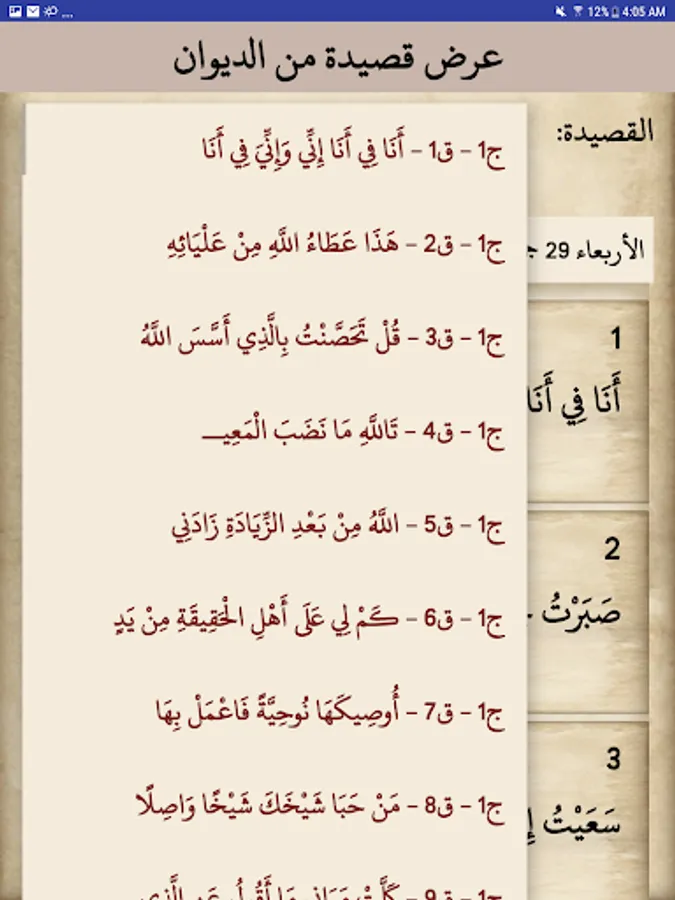 ... 12% 4:05 AM
عرض قصيدة من الديوان
القصيدة:
الأربعاء 29
ج1 - ق1 - أَنَا فِي أَنَا إِنِّي وَإِنِّيَ فِي أَنَا
ج1 - ق2 - هَذَا عَطَاءُ اللَّهِ مِنْ عَلْيَائِهِ
ج1 - ق3 - قُلْ تَحَصَّنْتُ بِالَّذِي أَسَّسَ اللَّهُ
ج1 - ق4 - تَاللَّهِ مَا نَضَبَ الْمَعِيــ
ج1 - ق5 - اللَّهُ مِنْ بَعْدِ الزِّيَادَةِ زَادَنِي
ج1 - ق6 - كَمْ لِي عَلَى أَهْلِ الْحَقِيقَةِ مِنْ يَدٍ
ج1 - ق7 - أُوصِيكَهَا نُوحِيَّةً فَاعْمَلْ بِهَا
ج1 - ق8 - مَنْ حَبَا شَيْخَكَ شَيْخًا وَاصِلًا
ج1 - ق9 -
1
أَنَا فِي أَنَا
2
صَبَرْتُ
3
سَعَيْتُ